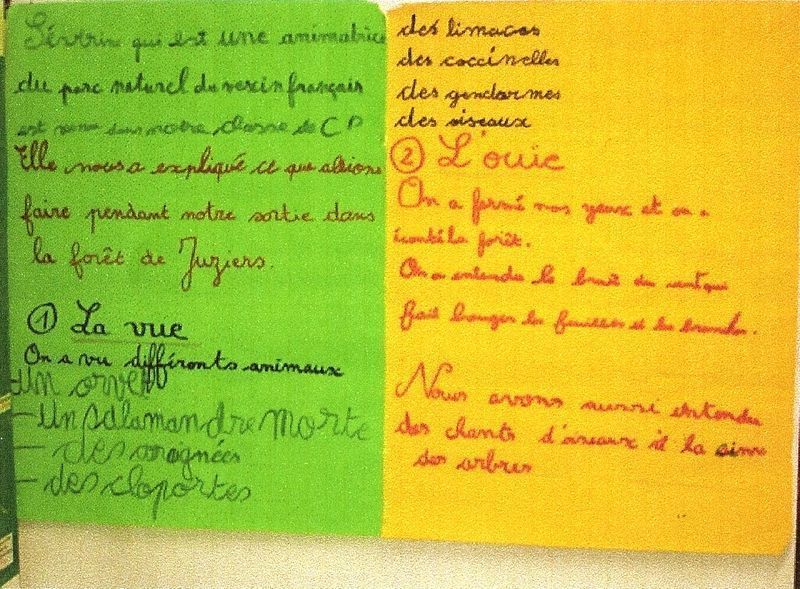 Séverin qui est une animatrice
du parc naturel du vexin français
est venue dans notre classe de CP
Elle nous a expliqué ce que allions
faire pendant notre sortie dans
la forêt de Juziers.
① La vue
On a vu différents animaux
un orvet
- Un salamandre morte
- des araignées
- des cloportes
des limaces
des coccinelles
des gendarmes
des oiseaux
② L'ouie
On a fermé nos yeux et on a
écouté la forêt.
On a entendu le bruit du vent qui
fait bouger les feuilles et les branches.
Nous avons aussi entendu
des chants d'oiseaux et la cime
des arbres